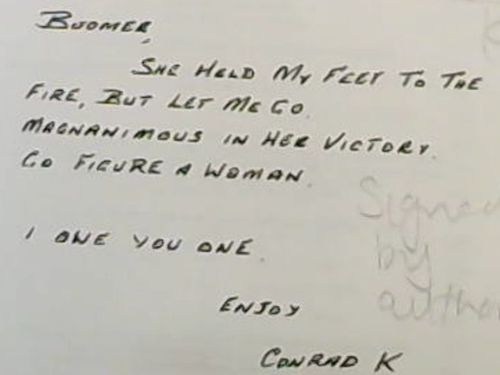 BOOMER,
SHE HELD MY FEET TO THE
FIRE, BUT LET ME GO.
MAGNANIMOUS IN HER VICTORY.
GO FIGURE A WOMAN.
I OWE YOU ONE.
ENJOY
CONRAD K
Signed
by
author